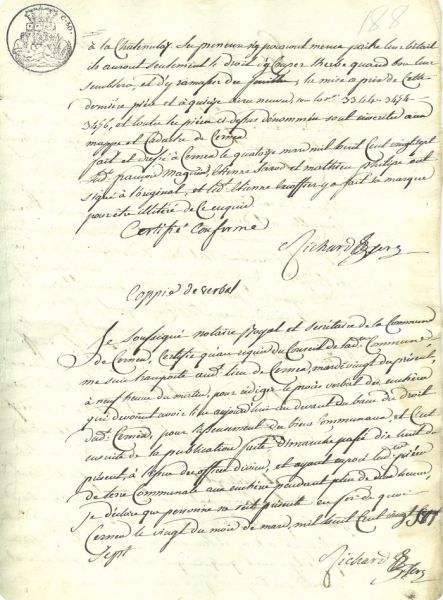 188
à la Chatenulaz. Les preneurs n'y pouvant mener paitre leur bétail
ils auront seulement le droit d'y couper l'herbe quand bon leur
semblera, et d'y ramasser des feuilles, la mise a prix de cette
dernière pièce est à quinze livres neuves, sous les n.os 3344-3454-
3456, et toutes les pièces cy dessus dénommées sont inscrites aux
mappe et Cadastre de Cernex
fait et dressé à Cernex le quatorze mars mil huit Cent vingt sept
Led. françois Magnin, Etienne et mathieu philippe ont
signé à l'original, et led. Etienne y a fait sa marque
pour être illitéré de ce enquis
Certifié Conforme
Richard Sre
Coppie de verbal
Je soussigné notaire Royal et Secrétaire de la Commune
de Cernex, Certifie qu'au requis du Conseil de lad.e Commune
me suis transporté aud. lieu de Cernex, mardi vingt du présent,
à neuf heures du matin, pour rédiger le procès verbal des enchères
qui devoient avoir lieu aujourd'hui au devant du banc du Droit
dud. Cernex, pour l'ascensement des biens Communaux, et C'est
ensuite de la publication faite Dimanche passé dix huit du
présent, à l'issue des offices divins, et ayant exposé lesd. pièces
de terre Communale aux enchères pendant plus de deux heures,
je déclare que personne ne s'est présenté. en foi de quoi
Cernex le vingt du mois de mars, mil huit Cent vingt
Sept
Richard Sre